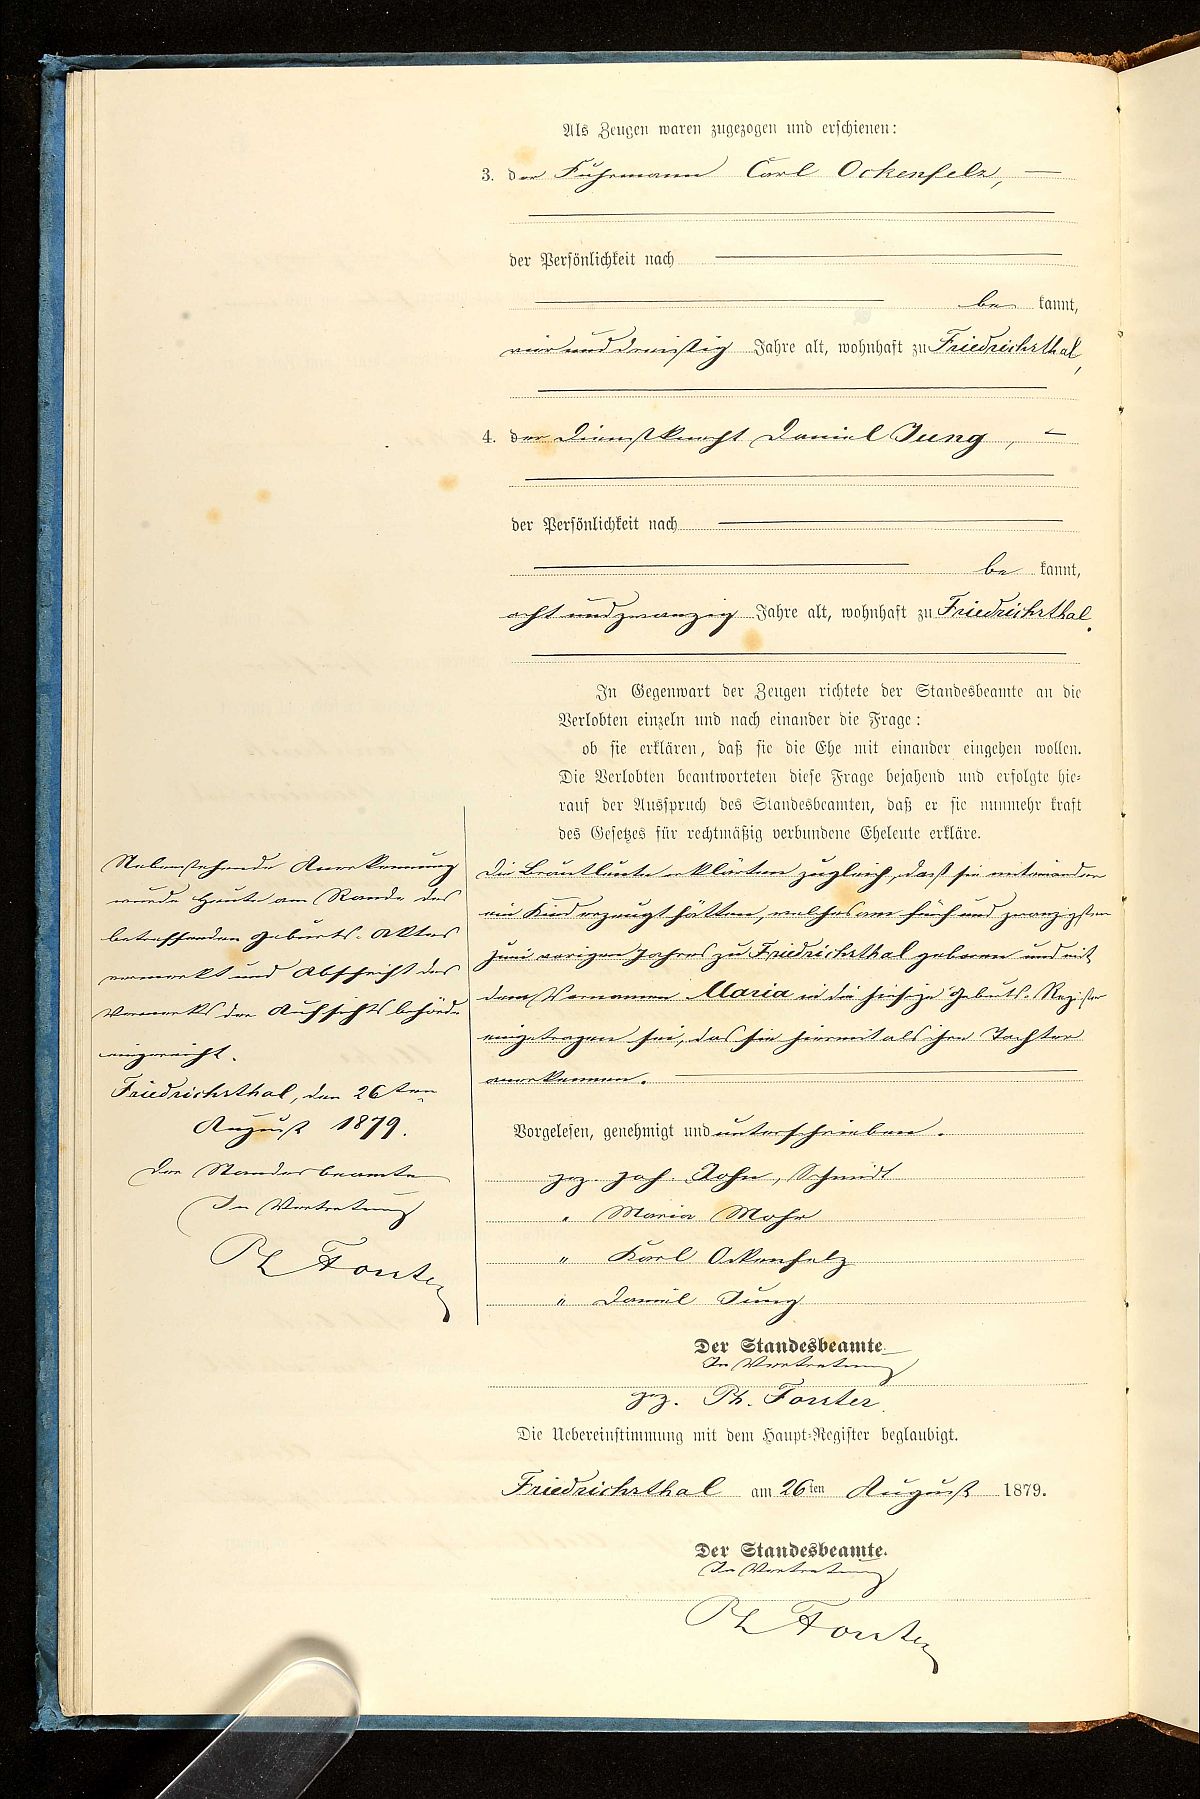 Als Zeugen waren zugezogen und erschienen:
3. der Fuhrmann Carl Ockenfelz, —
der Persönlichkeit nach
be kannt,
vierunddreißig Jahre alt, wohnhaft zu Friedrichsthal,
4. der Dienstknecht Daniel Jung, —
der Persönlichkeit nach
be kannt,
acht und zwanzig Jahre alt, wohnhaft zu Friedrichsthal.
In Gegenwart der Zeugen richtete der Standesbeamte an die
Verlobten einzeln und nach einander die Frage:
ob sie erklären, daß sie die Ehe mit einander eingehen wollen.
Die Verlobten beantworteten diese Frage bejahend und erfolgte hie-
rauf der Ausspruch des Standesbeamten, daß er sie nunmehr kraft
des Gesetzes für rechtmäßig verbundene Eheleute erkläre.
Die Brautleute erklärten zugleich, daß sie miteinander
ein Kind erzeugt hätten, welches am fünf und zwanzigsten
Juni vorigen Jahres zu Friedrichsthal geboren und mit
dem Vornamen Maria in die hiesige Geburts-Register
eingetragen sei, das sie hiermit als ihre Tochter
anerkennen.
Vorgelesen, genehmigt und unterschrieben.
gez. Joh. Schmidt
" Maria Mohr
" Karl Ockenfelz
" Daniel Jung
Der Standesbeamte
In Vertretung
gez. Ph. Forster.
Die Uebereinstimmung mit dem Haupt-Register beglaubigt.
Friedrichsthal am 26ten August 1879.
Der Standesbeamte.
In Vertretung
Ph Forster
Nebenstehende Anerkennung
wurde heute am Rande des
betreffenden Geburts-Aktes
vermerkt und Abschrift des
Vermerks der Aufsichtsbehörde
eingereicht.
Friedrichsthal, den 26ten
August 1879.
Der Standesbeamte
In Vertretung
Ph Forster